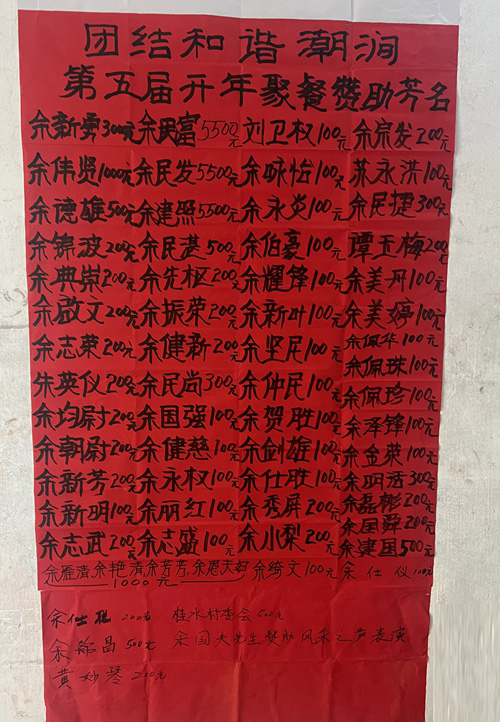 团结和谐潮涧
第五届开年聚餐赞助芳名
余新雾300元 余民富5500元 刘卫权100元 余宗发200元
余伟贤1000元 余民发5500元 余咏怡100元 苏永洪100元
余德雄500元 余建照5500元 余永炎100元 余民捷300元
余锦波200元 余民湛500元 余伯豪100元 谭玉梅200元
余典崇200元 余先枢200元 余耀锋100元 余美丹100元
余啟文200元 余振荣200元 余新叶100元 余美婷100元
余志荣200元 余健新200元 余坚民100元 余佩华100元
余佩珠100元
朱英仪200元 余民尚300元 余仲民100元 余佩珍100元
余均尉200元 余国强100元 余贺胜100元 余泽锋100元
余朝尉200元 余健慈100元 余剑雄100元 余金荣100元
余新芳200元 余永权100元 余仕胜100元 余明活300元
余新明100元 余丽红100元 余秀屏200元 余磊彬200元
余国舜200元
余志武200元 余志盛100元 余小梨200元 余建国500元
余雁清,余艳清,余芳芳,余恩夫妇 1000元 余绮文100元 余仕仪100元
余仕聪 200元 桂水村委会500元
余锦昌 500元 余国夫先生赞助风采之声表演
黄妙琴 200元